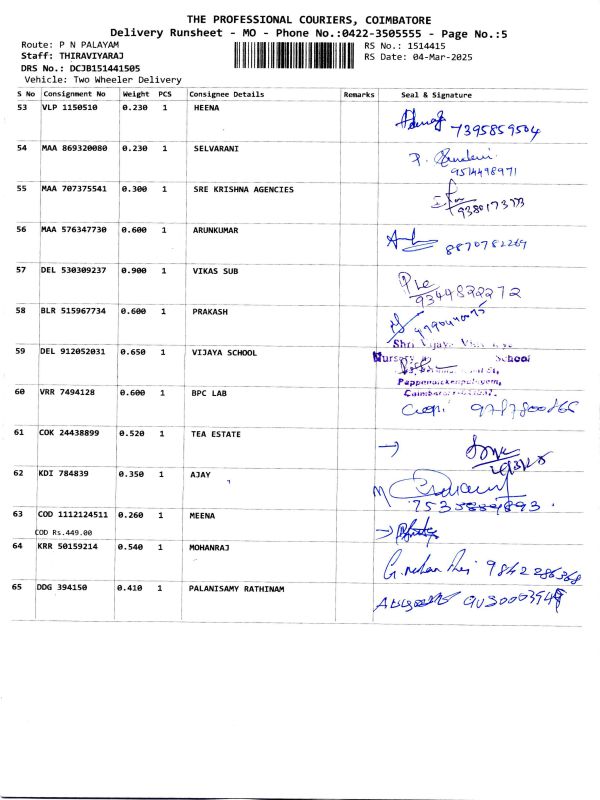 THE PROFESSIONAL COURIERS, COIMBATORE
Delivery Runsheet - MO - Phone No.:0422-3505555 - Page No.:5
Route: P N PALAYAM RS No.: 1514415
Staff: THIRAVIYARAJ RS Date: 04-Mar-2025
DRS No.: DCJB151441505
Vehicle: Two Wheeler Delivery
S No Consignment No Weight PCS Consignee Details Remarks Seal & Signature
53 VLP 1150510 0.230 1 HEENA
7395859504
54 MAA 869320080 0.230 1 SELVARANI
9514498971
55 MAA 707375541 0.300 1 SRE KRISHNA AGENCIES
56 MAA 576347730 0.600 1 ARUNKUMAR
8870782269
57 DEL 530309237 0.900 1 VIKAS SUB
9344822272
58 BLR 515967734 0.600 1 PRAKASH
59 DEL 912052031 0.650 1 VIJAYA SCHOOL
Shri Vijaya
Nursery School
Pappanaickenpalayam,
60 VRR 7494128 0.600 1 BPC LAB
61 COK 24438899 0.520 1 TEA ESTATE
62 KDI 784839 0.350 1 AJAY
63 COD 1112124511 0.260 1 MEENA
COD Rs.449.00
64 KRR 50159214 0.540 1 MOHANRAJ
9842286368
65 DDG 394150 0.410 1 PALANISAMY RATHINAM